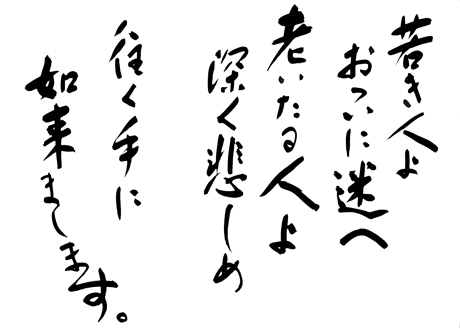 若き人よ
おおいに迷へ
老いたる人よ
深く悲しめ
往く手に
如来まします。